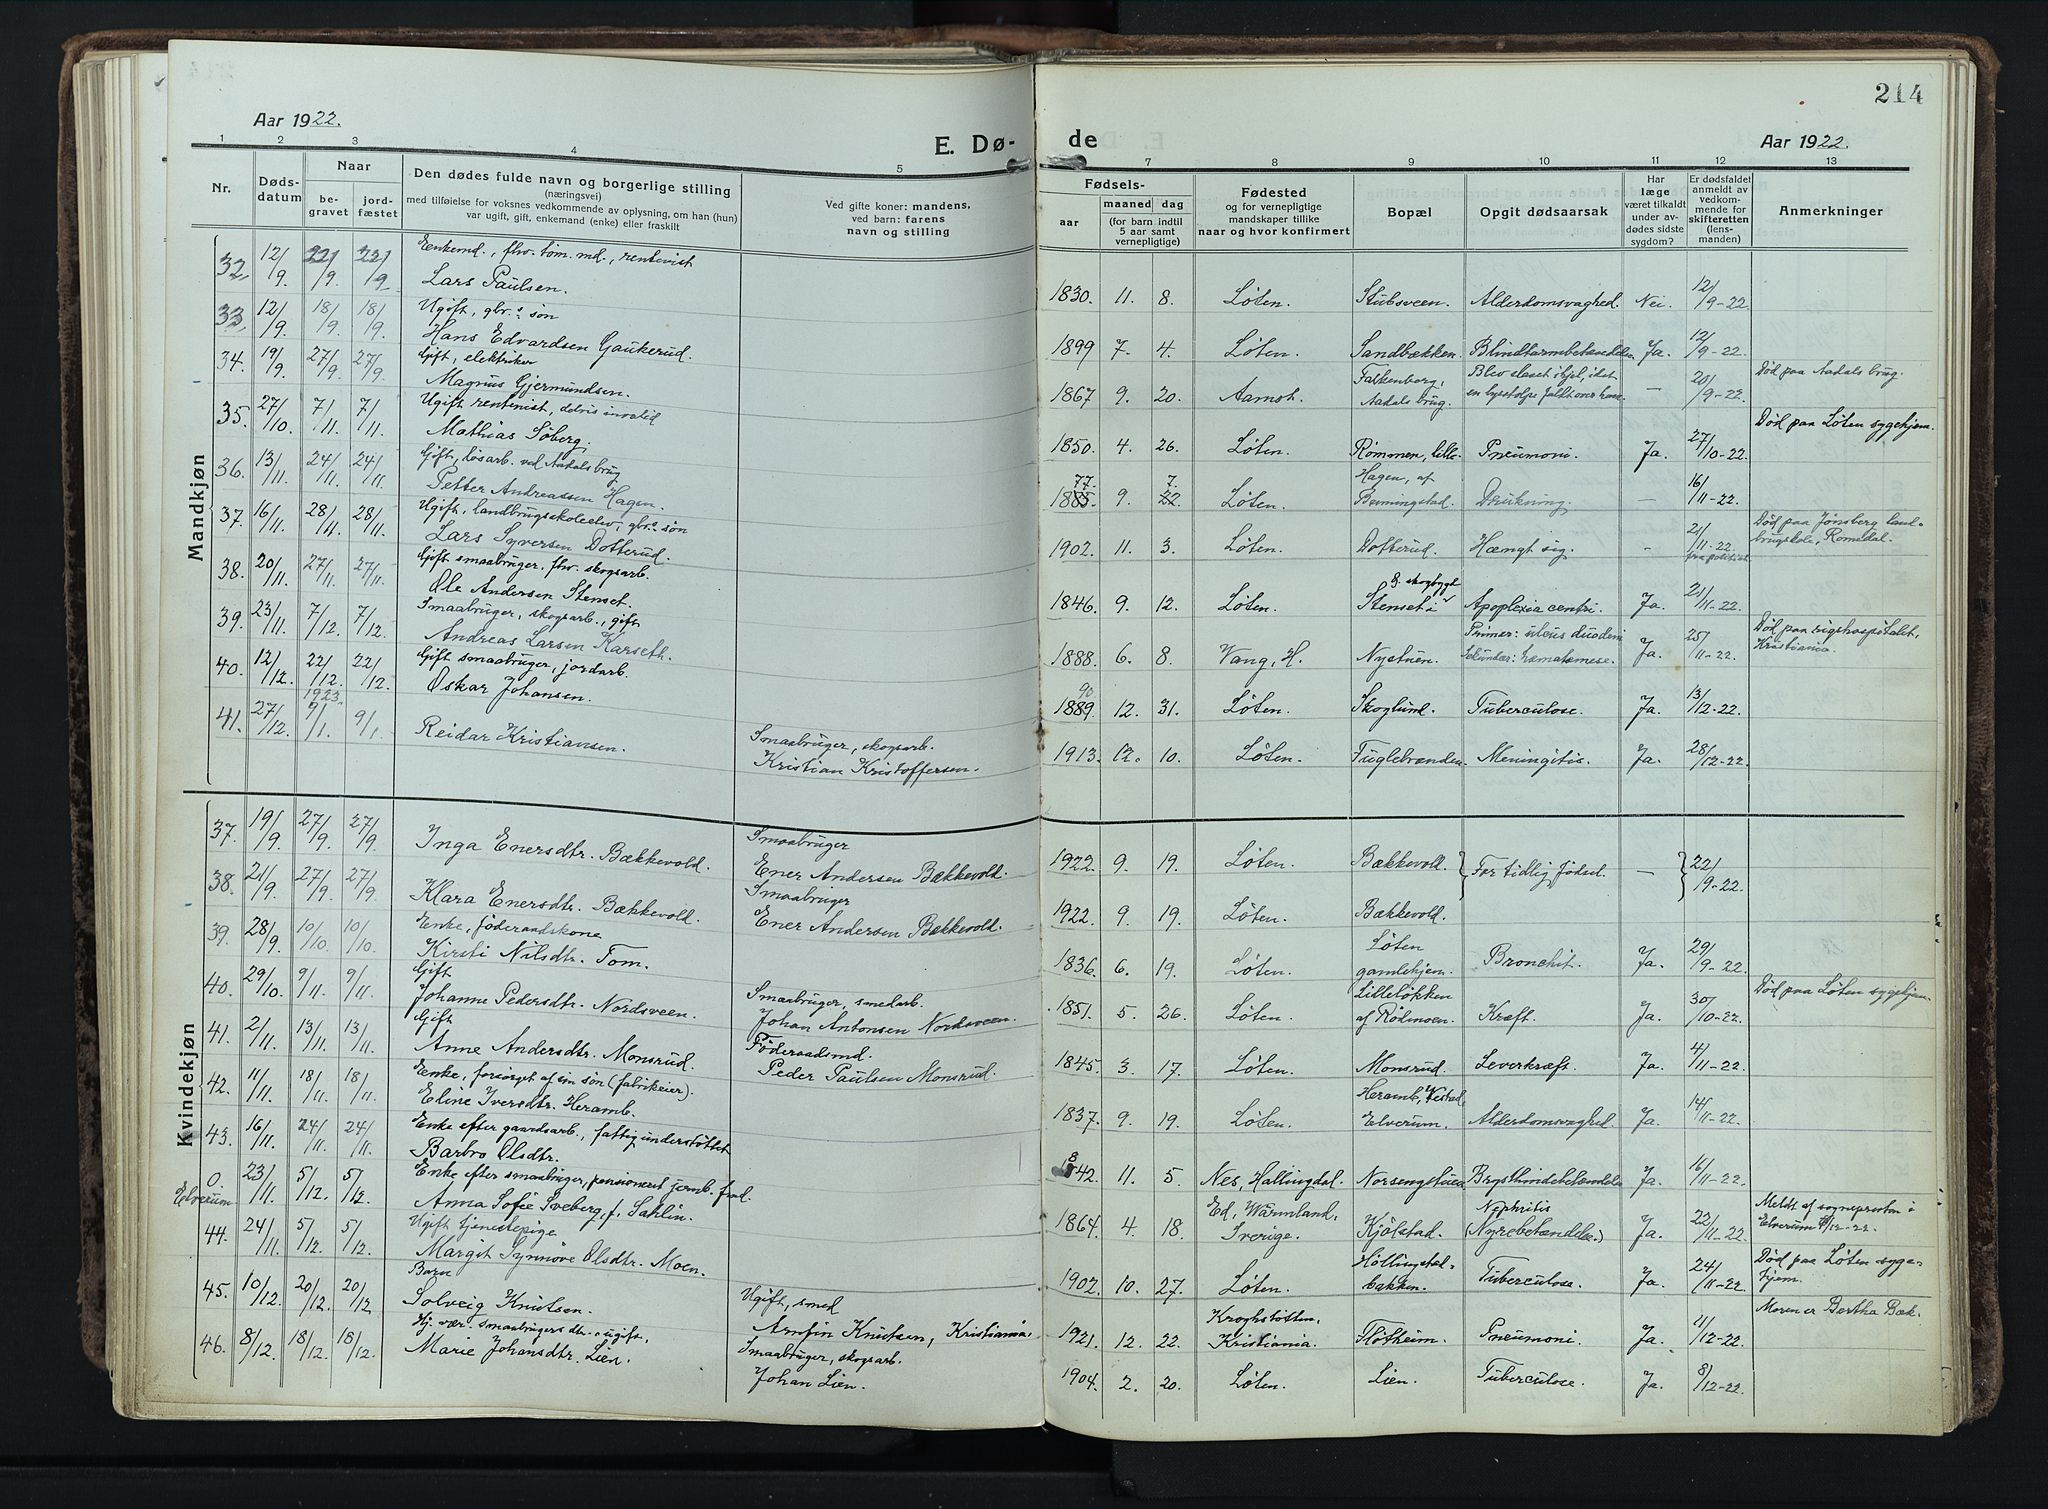 214
Aar 1922.
E. Dø-
de
Aar 1922.
1 2 3 4 5 7 8 9 10 11 12 13
Nr.
Døds-
datum
Naar
be-
gravet
jord-
fæstet
Den dødes fulde navn og borgerlige stilling
(næringsvei)
med tilføielse for voksnes vedkommende av oplysning, om han (hun)
var ugift, gift, enkemand (enke) eller fraskilt
Ved gifte koner: mandens,
ved barn: farens
navn og stilling
Fødsels-
aar
maaned
dag
(for barn indtil
5 aar samt
vernepligtige)
Fødested
og for vernepligtige
mandskaper tillike
naar og hvor konfirmert
Bopæl
Opgit dødsaarsak
Har
læge
været tilkaldt
under av-
dødes sidste
sygdom?
Er dødsfaldet
anmeldt av
vedkom-
mende for
skifteretten
(lens-
manden)
Anmerkninger
Mandkjøn
32. 12/9 22/9 22/9 Enkemd., fhv. tøm. md., rentenist
Lars Paulsen. 1830. 11. 8. Løten. Stubsveen. Alderdomsvaghed. Nei. 12/9-22.
33. 12/9. 18/9. 18/9. Ugift, gbr.s søn
Hans Edvardsen Gaukerud. 1899 7. 4. Løten. Sandbækken. Blindtarmbetændelse Ja. 12/9-22.
34. 19/9. 27/9. 27/9. Gift, elektriker
Magnus Gjermundsen. 1867 9. 20. Aamot. Falkenborg, Aadals brug. Blev slaaet ihjel, idet
en lysstolpe faldt over ham — 20/9-22. Død paa Aadals brug.
35. 27/10. 7/11. 7/11. Ugift rentenist, delvis invalid
Mathias Søberg. 1850. 4. 26. Løten. Rømmen, lille. Pneumoni. Ja. 27/10-22. Død paa Løten sygehjem.
36. 13/11. 24/11. 24/11. Gift, løsarb. ved Aadals brug
Petter Andreassen Hagen. 1885 77. 9. 22 7. Løten. Hagen, af
Benningstad. Drukning. — 16/11-22.
37. 16/11. 28/11. 28/11. Ugift, landbrugsskoleelev, gbr.s søn
Lars Syversen Dotterud. 1902. 11. 3. Løten. Dotterud. Hængt sig. — 21/11-22. fra politiet Død paa Jønsberg land-
brugskole, Romedal.
38. 20/11. 27/11. 27/11. Gift smaabruger, fhv. skogsarb.
Ole Andersen Stenset. 1846. 9. 12. Løten. Stenset i
s. skogbygd Apoplexia centri. Ja. 21/11-22.
39. 23/11. 7/12. 7/12. Smaabruger, skogsarb., gift
Andreas Larsen Karseth. 1888. 6. 8. Vang, H. Nystuen. Primær: ulcus duodeni
Sekundær: hæmatemese. Ja. 25/11-22. Død paa rigshospitalet,
Kristiania.
40. 12/12. 22/12. 22/12. Gift smaabruger, jordarb.
Oskar Johansen. 1889. 90. 12. 31. Løten. Skoglund. Tuberculose. Ja. 13/12-22.
41. 27/12. 1923. 9/1. 9/1. Reidar Kristiansen. Smaabruger, skogsarb.
Kristian Kristoffersen. 1913. 12. 10. Løten. Fuglebrænden. Meningitis. Ja. 28/12-22.
Kvindekjøn
37. 19/9. 27/9. 27/9. Inga Enersdtr. Bækkevold. Smaabruger
Ener Andersen Bækkevold. 1922. 9. 19. Løten. Bækkevold. For tidlig fødsel. — 22/9-22.
38. 21/9. 27/9. 27/9. Klara Enersdtr. Bækkevold. Smaabruger
Ener Andersen Bækkevold. 1922. 9. 19. Løten. Bækkevold.
39. 28/9. 10/10. 10/10. Enke, føderaadskone
Kirsti Nilsdtr. Tom. 1836. 6. 19. Løten. Løten
gamlehjem. Bronchit. Ja. 29/9-22.
40. 29/10. 9/11. 9/11. Gift
Johanne Pedersdtr. Nordsveen. Smaabruger, smedarb.
Johan Antonsen Nordsveen. 1851. 5. 26. Løten. Lilleløkken
af Rødmoen. Kræft. Ja. 30/10-22. Død paa Løten sygehjem.
41. 2/11. 13/11. 13/11. Gift
Anne Andersdtr. Monsrud. Føderaadsmd.
Peder Paulsen Monsrud. 1845. 3. 17. Løten. Monsrud. Leverkræft. Ja. 4/11-22.
42. 11/11. 18/11. 18/11. Enke, forsørget af sin søn (fabrikeier).
Eline Iversdtr. Heramb. 1837. 9. 19. Løten. Heramb, Vestad,
Elverum. Alderdomsvaghed. Ja. 14/11-22.
43. 16/11. 24/11. 24/11. Enke efter gaardsarb., fattigunderstøttet
Barbro Olsdtr. 1842. 11. 5. Nes, Hallingdal. Norsengstuen. Brysthindebetændelse Ja. 16/11-22.
0. Elverum 23/11. 5/12. 5/12. Enke efter smaabruger, pensioneret jernb. fud.
Anna Sofie Sveberg, f. Sahlin. 1864. 4. 18. Ed, Wärmland,
Sverige. Kjølstad. Nephritis
(Nyrebetændelse.) Ja. 22/11-22. Meldt af sognepresten i
Elverum 8/12-22.
44. 24/11. 5/12. 5/12. Ugift tjenestepige
Margit Synnøve Olsdtr. Moen. 1902. 10. 27. Løten. Høllingstad-
bakken. Tuberculose. Ja. 24/11-22. Død paa Løten syge-
hjem.
45. 10/12. 20/12. 20/12. Barn
Solveig Knutsen. Ugift, smed
Arnfin Knutsen, Kristiania. 1921. 12. 22. Kroghstøtten,
Kristiania. Fløtheim. Pneumoni. Ja. 11/12-22. Moren er Bertha Bæk.
46. 8/12. 18/12. 18/12. Hj. vær. smaabrugersdtr. ugift,
Marie Johansdtr. Lien. Smaabruger, skogsarb.
Johan Lien. 1904. 2. 20. Løten. Lien. Tuberculose. Ja. 8/12-22.